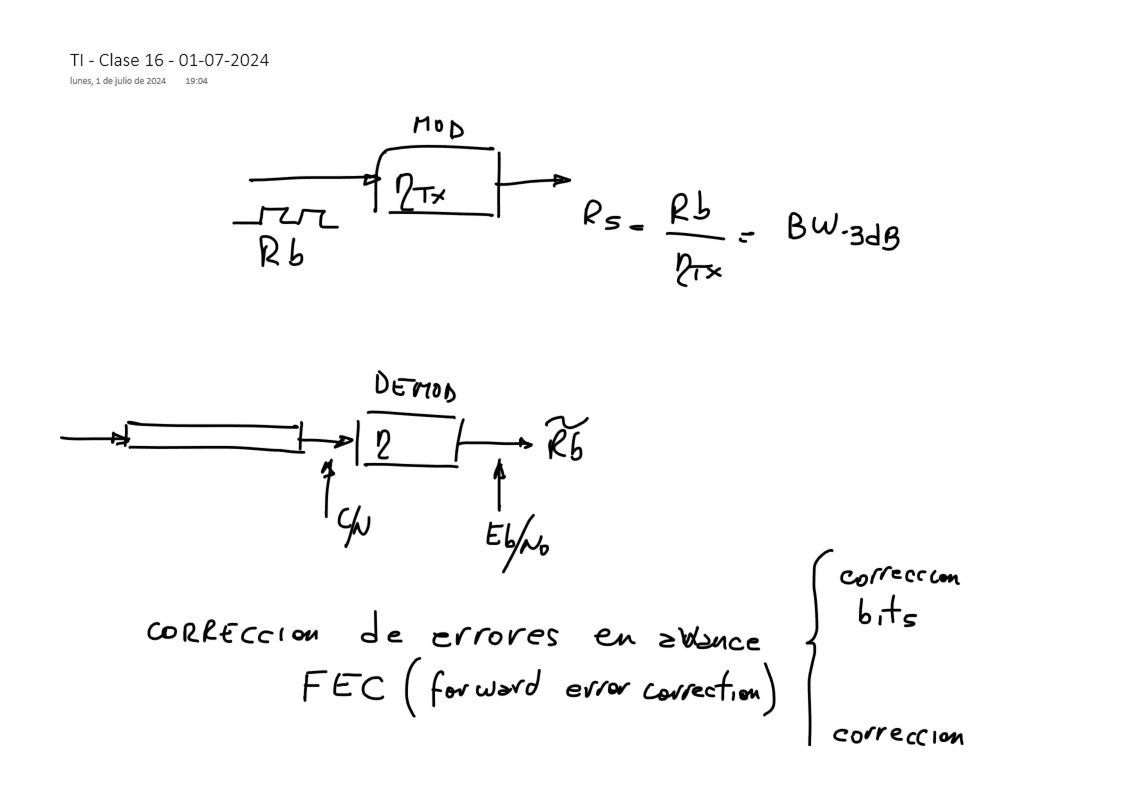 TI - Clase 16 - 01-07-2024
lunes, 1 de julio de 2024 19:04
MOD
ηTx
Rb
Rs = Rb / ηTx = BW-3dB
DEMOD
η
R̃b
C/N
Eb/No
correccion
bits
CORRECCION de errores en avance
FEC (forward error correction)
correccion